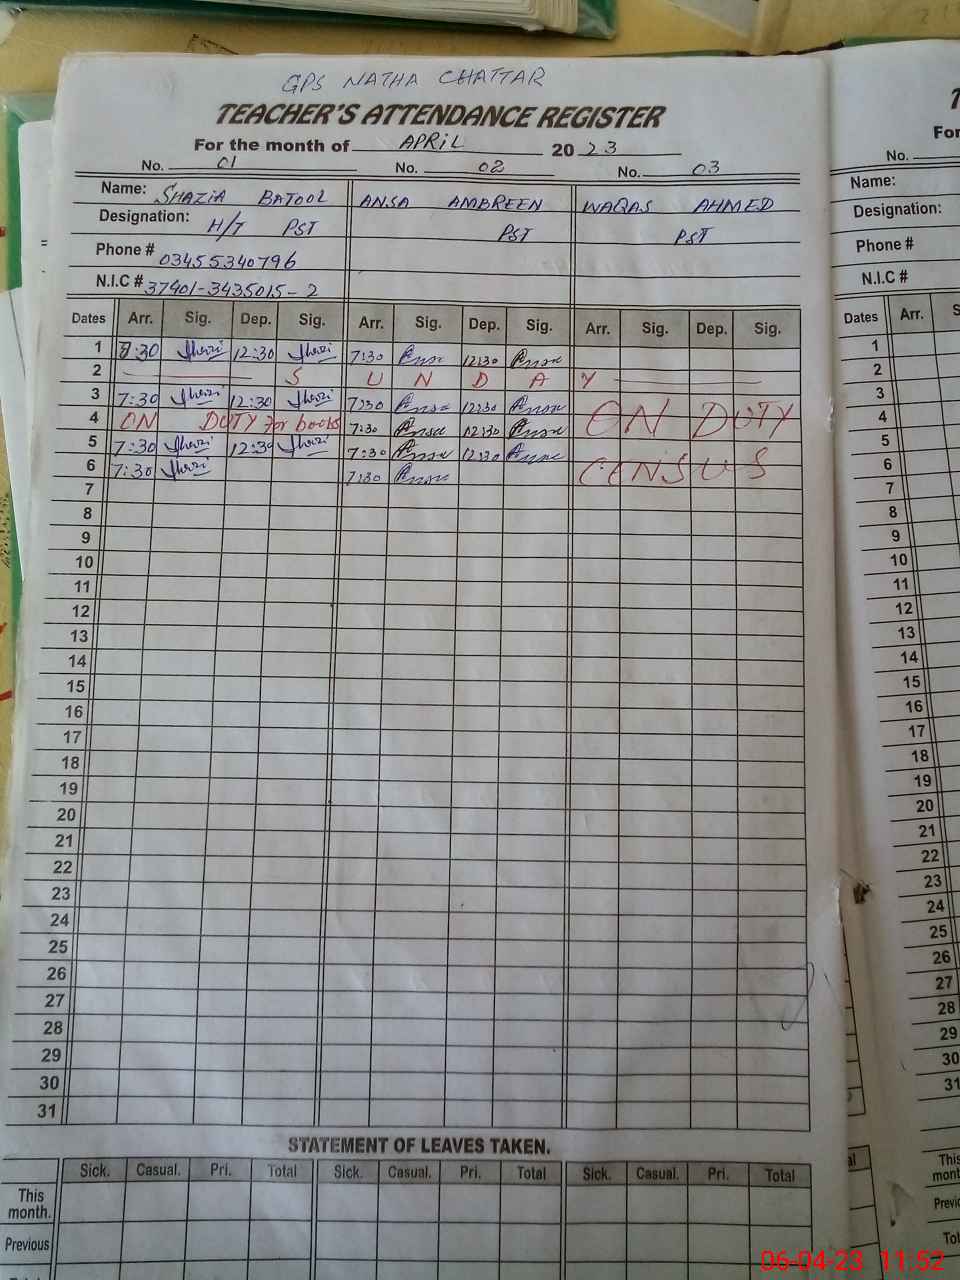 GPS NATHA CHATTAR
TEACHER'S ATTENDANCE REGISTER
For the month of APRIL 2023
No. 01 No. 02 No. 03
Name: SHAZIA BATOOL ANSA AMBREEN WAQAS AHMED
Designation: H/T PST PST PST
Phone # 03455340796
N.I.C # 37401-3435015-2
Dates Arr. Sig. Dep. Sig. Arr. Sig. Dep. Sig. Arr. Sig. Dep. Sig.
1 7:30 Shazi 12:30 Shazi 7:30 Ansa 12:30 Ansa
2 S U N D A Y
3 7:30 Shazi 12:30 Shazi 7:30 Ansa 12:30 Ansa ON DUTY
4 ON DUTY For books 7:30 Ansa 12:30 Ansa
5 7:30 Shazi 12:30 Shazi 7:30 Ansa 12:30 Ansa
6 7:30 Shazi 7:30 Ansa CENSUS
7
8
9
10
11
12
13
14
15
16
17
18
19
20
21
22
23
24
25
26
27
28
29
30
31
STATEMENT OF LEAVES TAKEN.
Sick. Casual. Pri. Total Sick. Casual. Pri. Total Sick. Casual. Pri. Total
This
month.
Previous
No.
Name:
Designation:
Phone #
N.I.C #
Dates Arr.
1
2
3
4
5
6
7
8
9
10
11
12
13
14
15
16
17
18
19
20
21
22
23
24
25
26
27
28
29
30
31
This
06-04-23 11:52